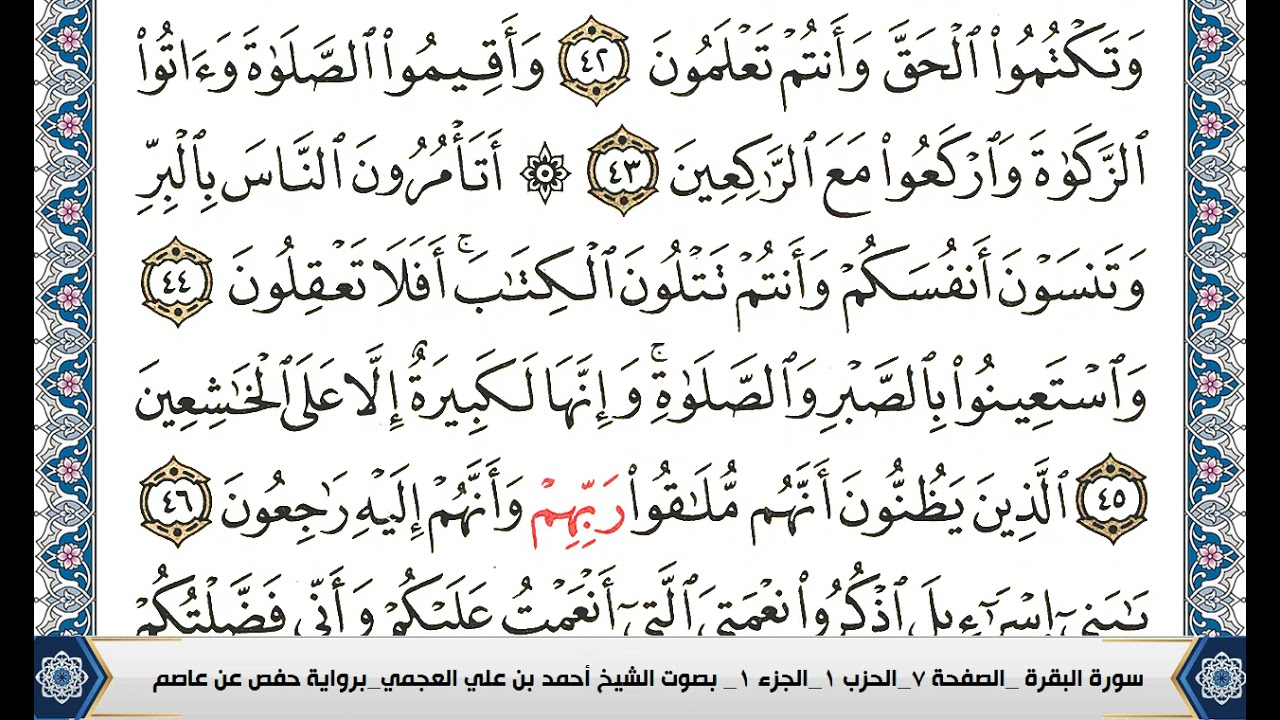 وَتَكْتُمُوا۟ ٱلْحَقَّ وَأَنتُمْ تَعْلَمُونَ ٤٢ وَأَقِيمُوا۟ ٱلصَّلَوٰةَ وَءَاتُوا۟
ٱلزَّكَوٰةَ وَٱرْكَعُوا۟ مَعَ ٱلرَّٰكِعِينَ ٤٣ ۞ أَتَأْمُرُونَ ٱلنَّاسَ بِٱلْبِرِّ
وَتَنسَوْنَ أَنفُسَكُمْ وَأَنتُمْ تَتْلُونَ ٱلْكِتَٰبَ ۚ أَفَلَا تَعْقِلُونَ ٤٤
وَٱسْتَعِينُوا۟ بِٱلصَّبْرِ وَٱلصَّلَوٰةِ ۚ وَإِنَّهَا لَكَبِيرَةٌ إِلَّا عَلَى ٱلْخَٰشِعِينَ
٤٥ ٱلَّذِينَ يَظُنُّونَ أَنَّهُم مُّلَٰقُوا۟ رَبِّهِمْ وَأَنَّهُمْ إِلَيْهِ رَٰجِعُونَ ٤٦
يَٰبَنِىٓ إِسْرَٰٓءِيلَ ٱذْكُرُوا۟ نِعْمَتِىَ ٱلَّتِىٓ أَنْعَمْتُ عَلَيْكُمْ وَأَنِّى فَضَّلْتُكُمْ
سورة البقرة _الصفحة ٧_الحزب ١_الجزء ١_ بصوت الشيخ أحمد بن علي العجمي_برواية حفص عن عاصم